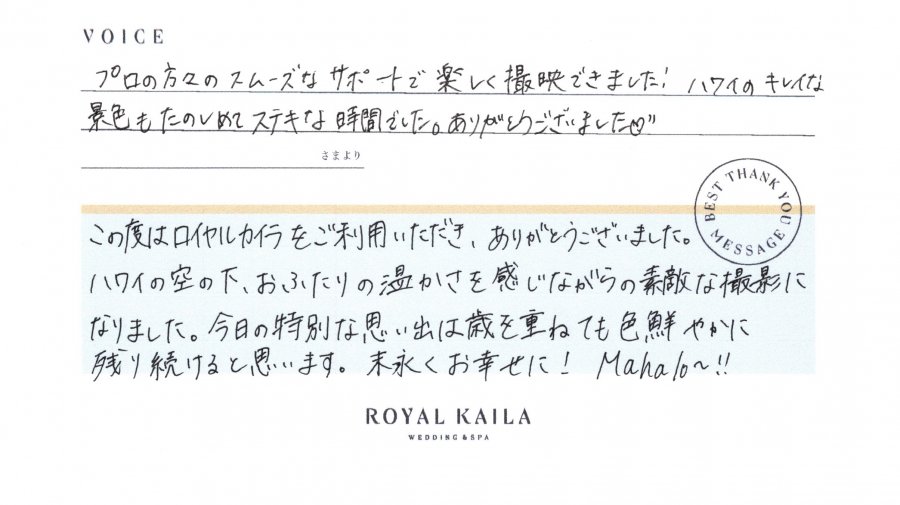 VOICE
プロの方々のスムーズなサポートで楽しく撮映できました! ハワイのキレイな
景色もたのしめてステキな時間でした。ありがとうございました♡"
さまより
BEST THANK YOU MESSAGE
この度はロイヤルカイラをご利用いただき、ありがとうございました。
ハワイの空の下、おふたりの温かさを感じながらの素敵な撮影に
なりました。今日の特別な思い出は歳を重ねても色鮮やかに
残り続けると思います。末永くお幸せに! Mahalo~!!
ROYAL KAILA
WEDDING & SPA